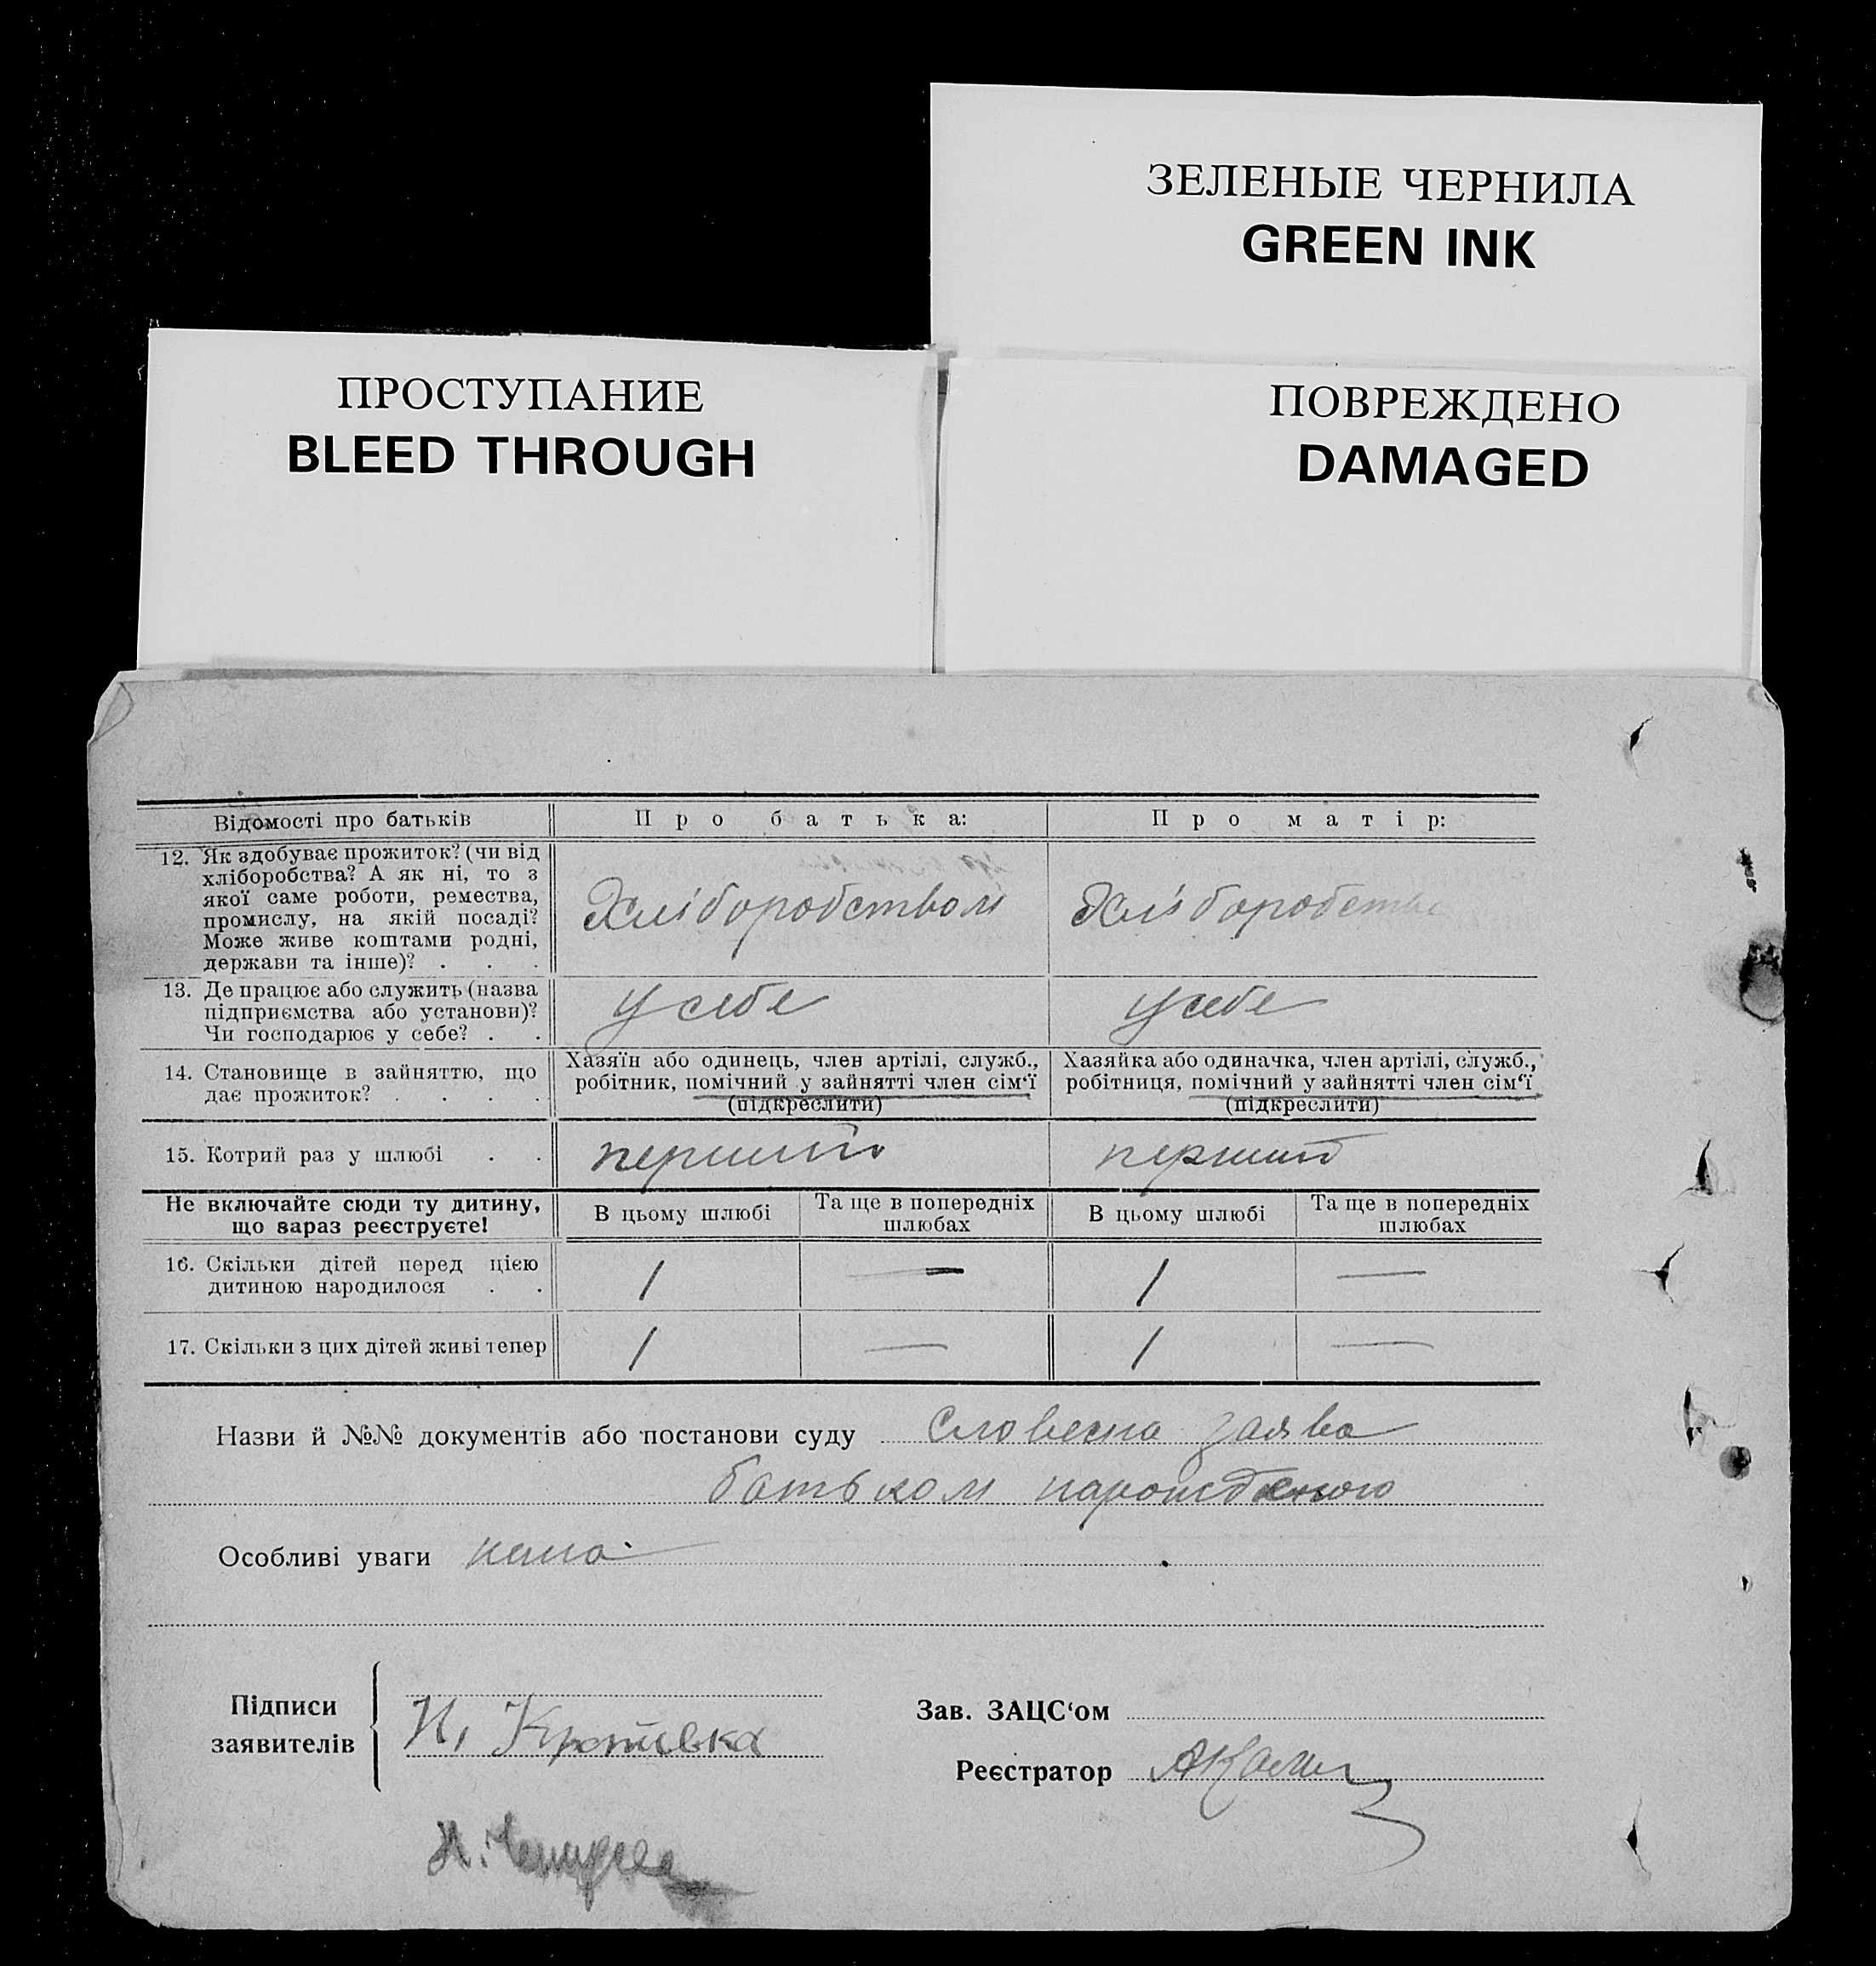 ЗЕЛЕНЫЕ ЧЕРНИЛА
GREEN INK
ПРОСТУПАНИЕ
BLEED THROUGH
ПОВРЕЖДЕНО
DAMAGED
Відомості про батьків
Про батька:
Про матір:
12. Як здобуває прожиток? (чи від
хліборобства? А як ні, то з
якої саме роботи, ремества,
промислу, на якій посаді?
Може живе коштами родні,
держави та інше)? . . .
Хліборобством
Хліборобство
13. Де працює або служить (назва
підприємства або установи)?
Чи господарює у себе? . .
у себе
у себе
14. Становище в зайняттю, що
дає прожиток? . . . .
Хазяїн або одинець, член артілі, служб.,
робітник, помічний у зайнятті член сім‘ї
(підкреслити)
Хазяйка або одиначка, член артілі, служб.,
робітниця, помічний у зайнятті член сім‘ї
(підкреслити)
15. Котрий раз у шлюбі . .
перший
перший
Не включайте сюди ту дитину,
що зараз реєструєте!
В цьому шлюбі
Та ще в попередніх
шлюбах
В цьому шлюбі
Та ще в попередніх
шлюбах
16. Скільки дітей перед цією
дитиною народилося . .
1 — 1 —
17. Скільки з цих дітей живі тепер
1 — 1 —
Назви й №№ документів або постанови суду словесна заява
батьком народженого
Особливі уваги нема
Підписи
заявителів
Н. Кропивка
Зав. ЗАЦС‘ом
Реєстратор